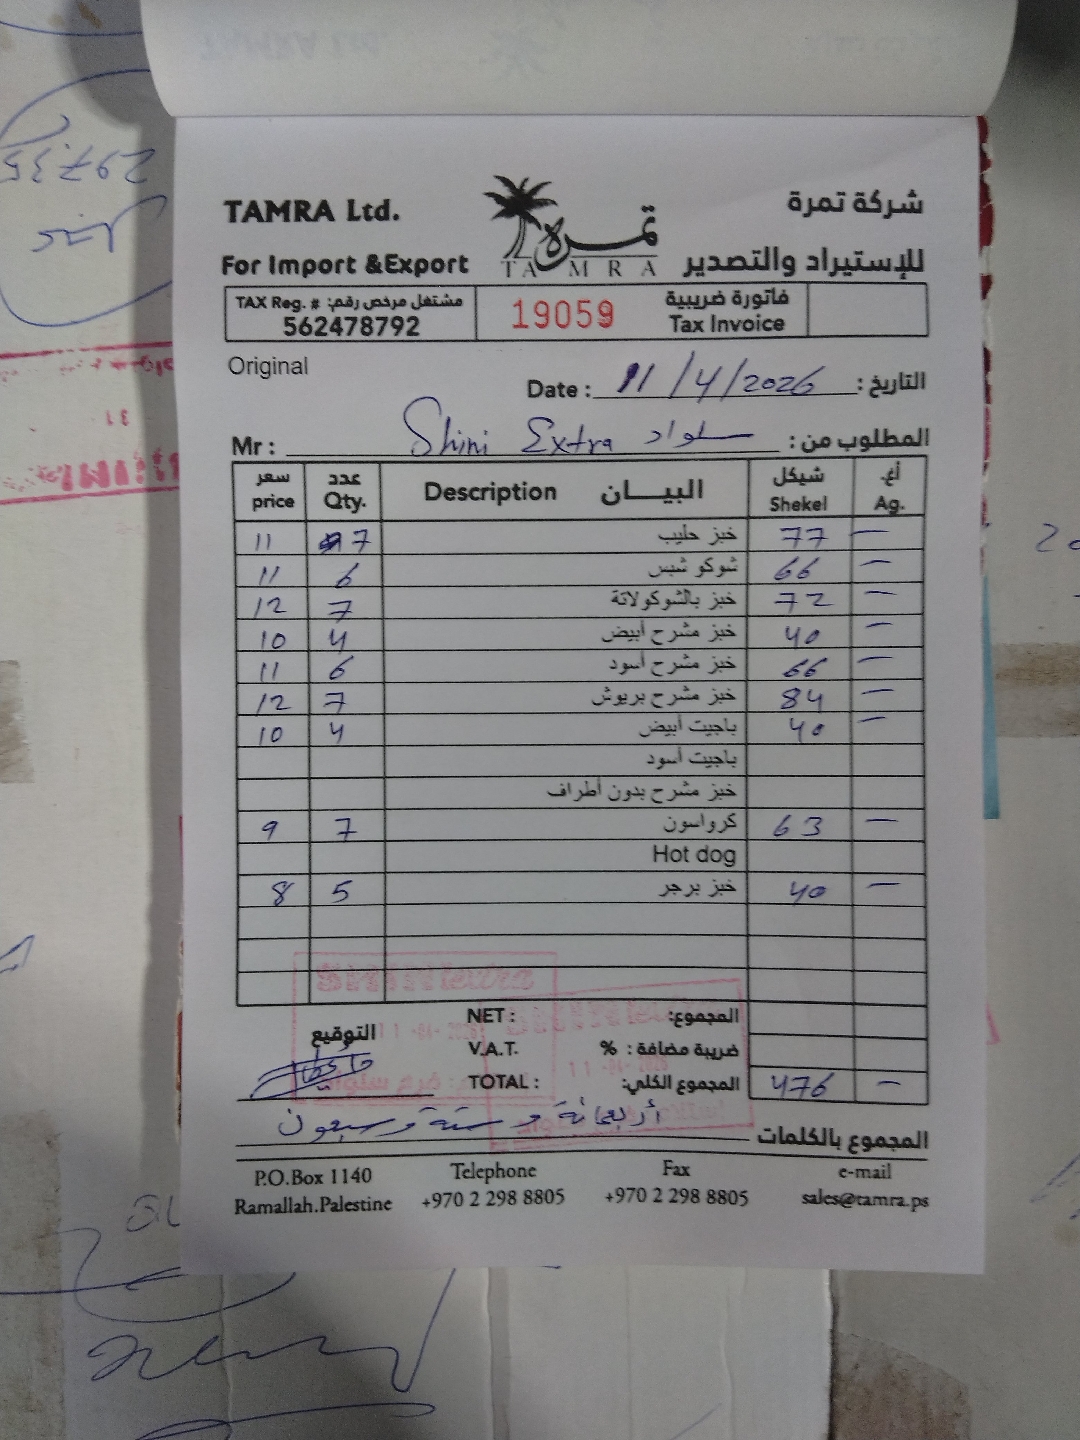 TAMRA Ltd. شركة تمرة
For Import &Export للإستيراد والتصدير
تمرة
TAMRA
TAX Reg. # مشتغل مرخص رقم:
562478792
19059
فاتورة ضريبية
Tax Invoice
Original
Date : 11/4/2026 التاريخ :
Mr : Shini Extra سلواد المطلوب من :
سعر عدد البيـــان شيكل أغ.
price Qty. Description Shekel Ag.
11 7 خبز حليب 77 —
11 6 شوكو شبس 66 —
12 7 خبز بالشوكولاتة 72 —
10 4 خبز مشرح أبيض 40 —
11 6 خبز مشرح أسود 66 —
12 7 خبز مشرح بريوش 84 —
10 4 باجيت أبيض 40 —
باجيت أسود
خبز مشرح بدون أطراف
9 7 كرواسون 63 —
Hot dog
8 5 خبز برجر 40 —
SHINI extra
NET : المجموع:
التوقيع
V.A.T. % ضريبة مضافة :
TOTAL : المجموع الكلي: 476 —
11-04-2026
المجموع بالكلمات أربعمائة وستة وسبعون
P.O.Box 1140 Telephone Fax e-mail
Ramallah.Palestine +970 2 298 8805 +970 2 298 8805 sales@tamra.ps
297.35
31